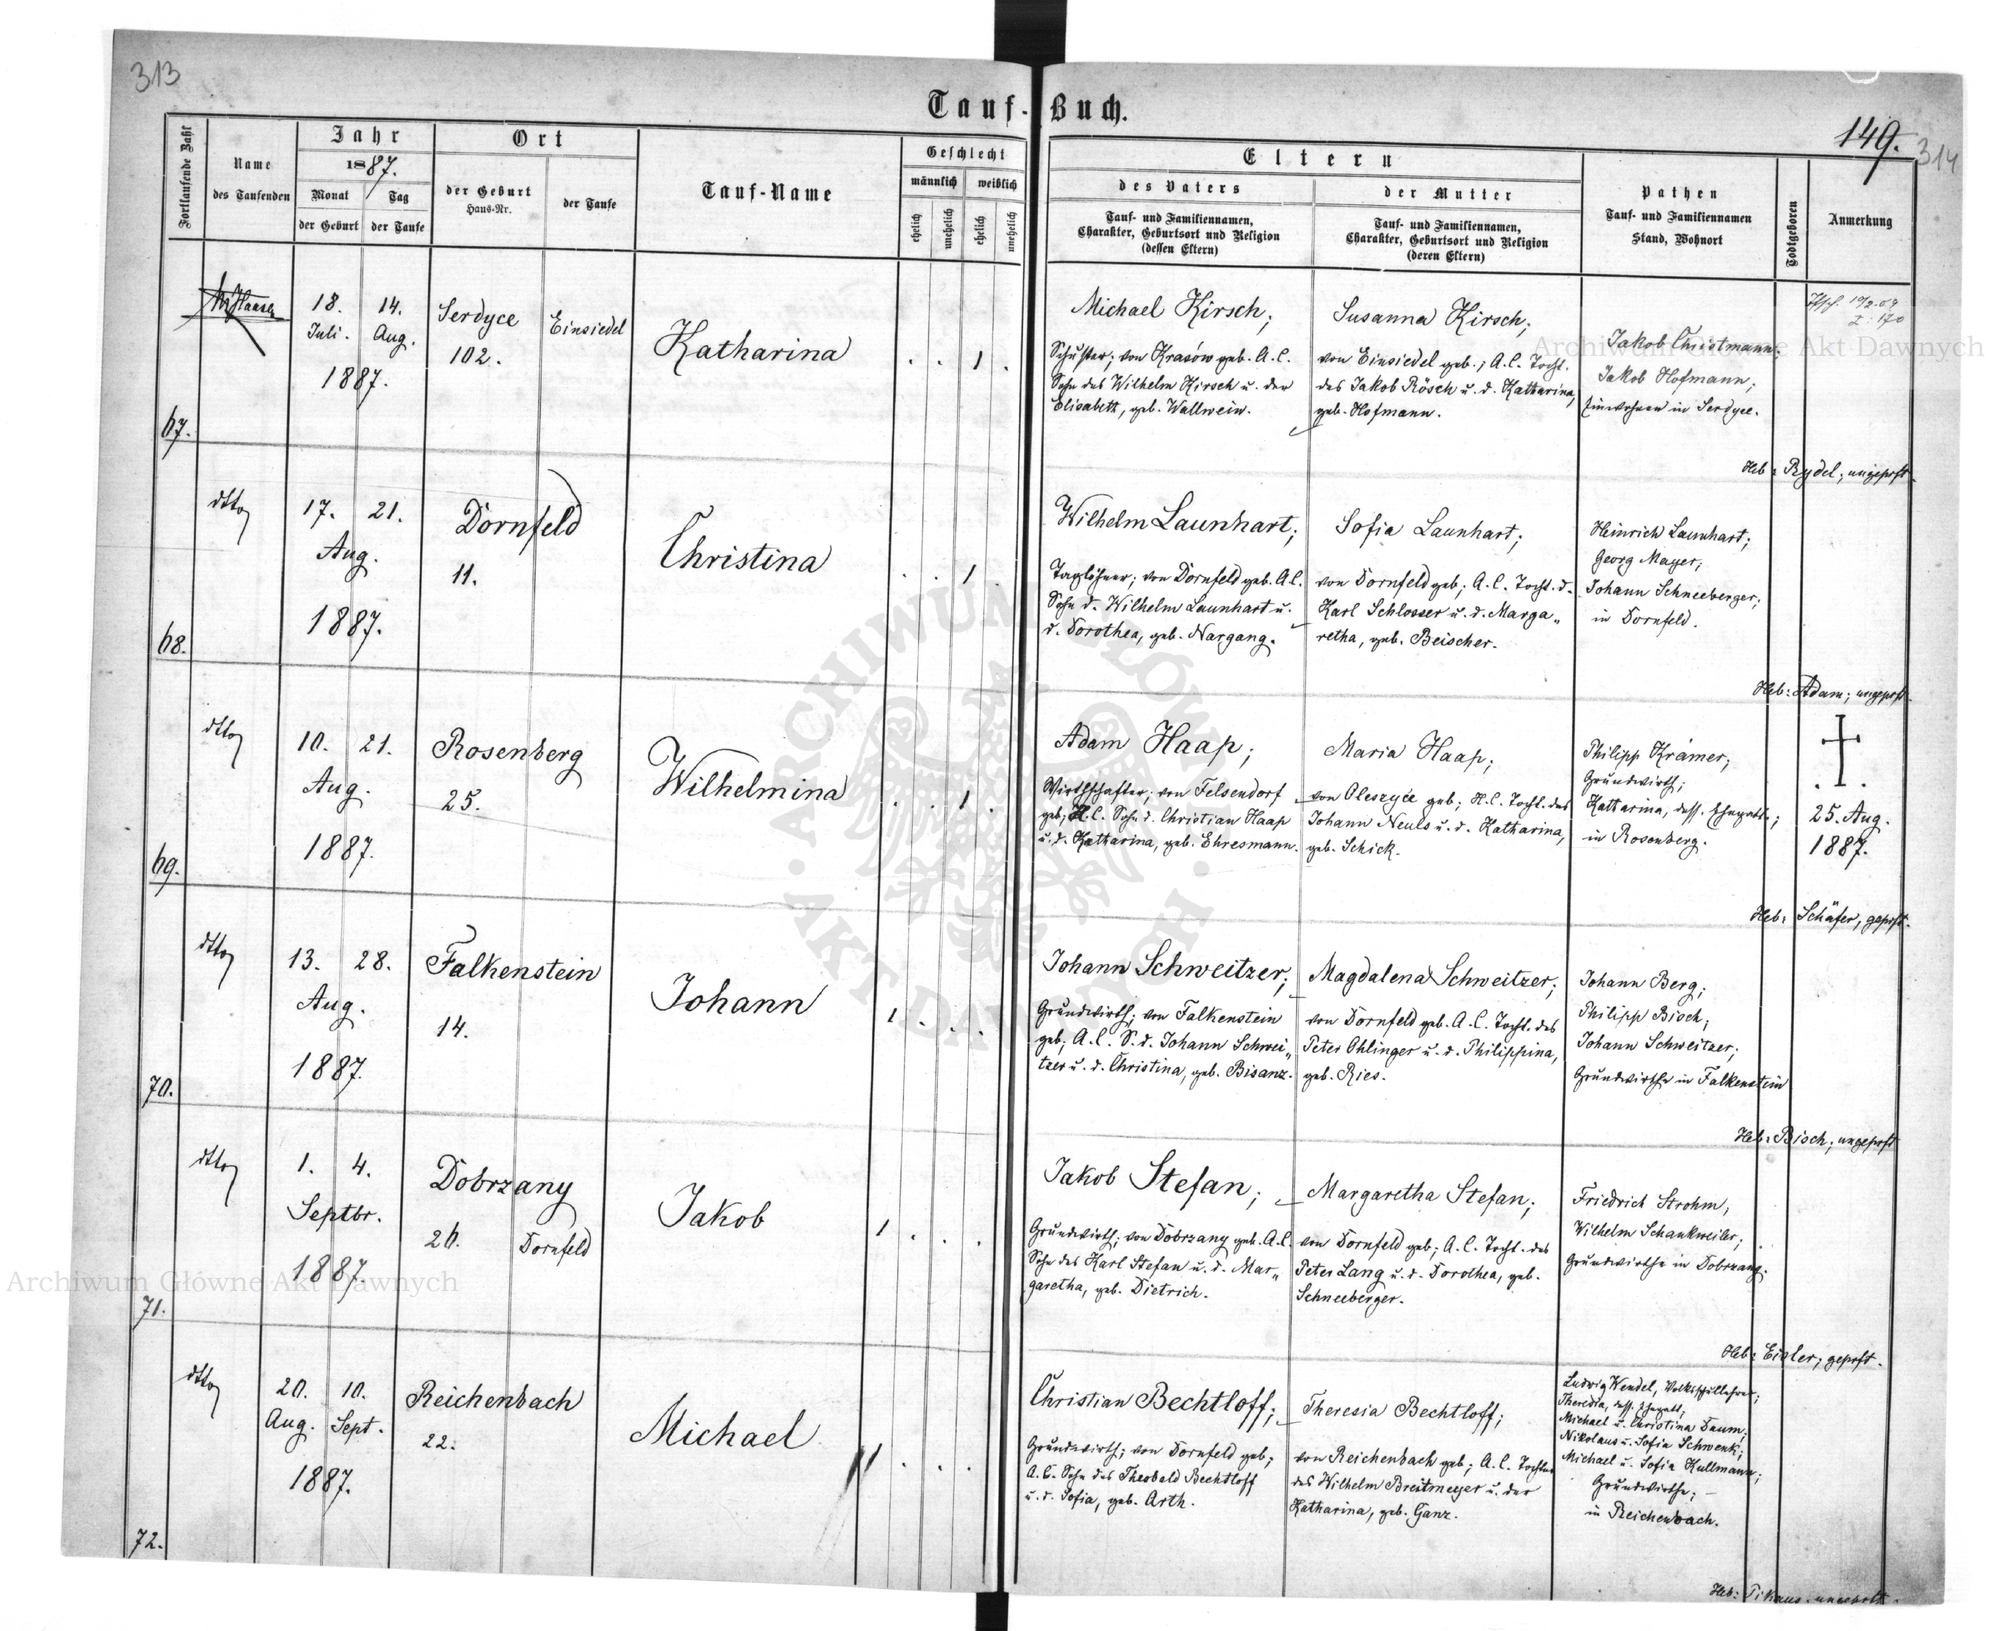 313
Tauf-Buch.
149.
314
Fortlaufende Zahl
Name
des Taufenden
Jahr
1887.
Monat
der Geburt
Tag
der Taufe
Ort
der Geburt
Haus-Nr.
der Taufe
Tauf-Name
Geschlecht
männlich
weiblich
ehelich
unehelich
ehelich
unehelich
Eltern
des Vaters
Tauf- und Familiennamen,
Charakter, Geburtsort und Religion
(dessen Eltern)
der Mutter
Tauf- und Familiennamen,
Charakter, Geburtsort und Religion
(deren Eltern)
Pathen
Tauf- und Familiennamen
Stand, Wohnort
Todtgeboren
Anmerkung
67.
18. 14.
Juli. Aug.
1887.
Serdyce
102.
Einsiedel
Katharina
. . 1 .
Michael Kirsch;
Schuster; von Krasów geb. A.C.
Sohn des Wilhelm Kirsch u. der
Elisabeth, geb. Wallwein.
Susanna Kirsch;
von Einsiedel geb.; A.C. Tocht.
des Jakob Rösch u. d. Katharina,
geb. Hofmann.
Jakob Christmann;
Jakob Hofmann;
Einwohner in Serdyce.
Heb: Rydel; ungeprft.
68.
dtto
17. 21.
Aug.
1887.
Dornfeld
11.
Christina
. . 1 .
Wilhelm Launhart;
Taglöhner; von Dornfeld geb. A.C.
Sohn d. Wilhelm Launhart u.
d. Dorothea, geb. Nargang.
Sofia Launhart;
von Dornfeld geb; A.C. Tocht. d.
Karl Schlosser u. d. Marga„
retha, geb. Beischer.
Heinrich Launhart;
Georg Mayer;
Johann Schneeberger;
in Dornfeld.
Heb: Adam; ungeprft.
69.
dtto
10. 21.
Aug.
1887.
Rosenberg
25.
Wilhelmina
. . 1 .
Adam Haap;
Wirthschafter; von Felsendorf
geb; H.C. Sohn d. Christian Haap
u. d. Katharina, geb. Ehresmann.
Maria Haap;
von Oleszyce geb; H.C. Tocht. des
Johann Neuls u. d. Katharina,
geb. Schick.
Philipp Krämer;
Grundwirth;
Katharina, dess. Ehegatt.;
in Rosenberg.
25. Aug.
1887.
Heb: Schäfer, geprft.
70.
dtto
13. 28.
Aug.
1887.
Falkenstein
14.
Johann
1 . . .
Johann Schweitzer;
Grundwirth; von Falkenstein
geb; A.C. S. d. Johann Schwei„
tzer u. d. Christina, geb. Bisanz.
Magdalena Schweitzer;
von Dornfeld geb. A.C. Tocht. des
Peter Ohlinger u. d. Philippina,
geb. Ries.
Johann Berg;
Philipp Bisch;
Johann Schweitzer;
Grundwirthe in Falkenstein
Heb: Bisch; ungeprft
71.
dtto
1. 4.
Septbr.
1887.
Dobrzany
26.
Dornfeld
Jakob
1 . . .
Jakob Stefan;
Grundwirth; von Dobrzany geb. A.C.
Sohn des Karl Stefan u. d. Mar„
garetha, geb. Dietrich.
Margaretha Stefan;
von Dornfeld geb; A.C. Tocht. des
Peter Lang u. d. Dorothea, geb.
Schneeberger.
Friedrich Strohm,
Wilhelm Schankweiler;
Grundwirthe in Dobrzany.
Heb: Eisler; geprft.
72.
dtto
20. 10.
Aug. Sept.
1887.
Reichenbach
22.
Michael
1 . . .
Christian Bechtloff;
Grundwirth; von Dornfeld geb;
A.C. Sohn des Theobald Bechtloff
u. d. Sofia, geb. Arth.
Theresia Bechtloff;
von Reichenbach geb; A.C. Tochter
des Wilhelm Breitmeyer u. der
Katharina, geb. Ganz.
Ludwig Wendel, Volksschullehrer;
Theresia, dess. Ehegatt;
Michael u. Christina Daum;
Nikolaus u. Sofia Schwenk;
Michael u. Sofia Kullmann;
Grundwirthe;
in Reichenbach.
Archiwum Główne Akt Dawnych
Archiwum Główne Akt Dawnych
ARCHIWUM GŁÓWNE AKT DAWNYCH